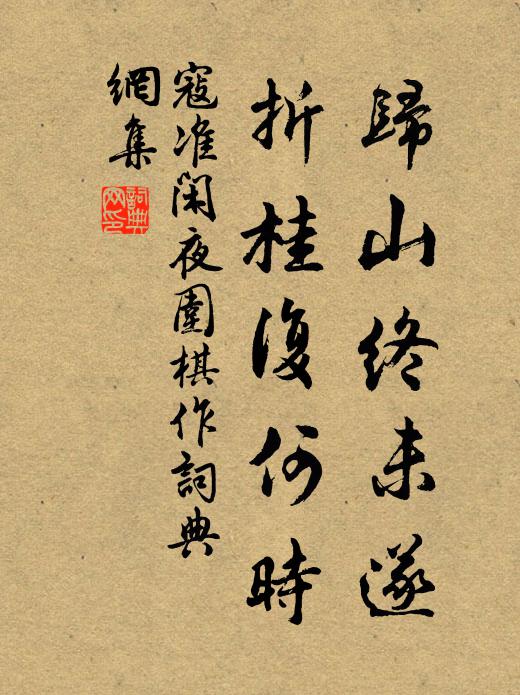 歸山終未遂
折桂復何時
寇准閑夜圍棋作詞典
網集
詞典
网印